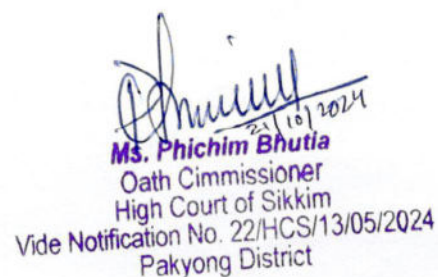 21/10/2024
Ms. Phichim Bhutia
Oath Cimmissioner
High Court of Sikkim
Vide Notification No. 22/HCS/13/05/2024
Pakyong District